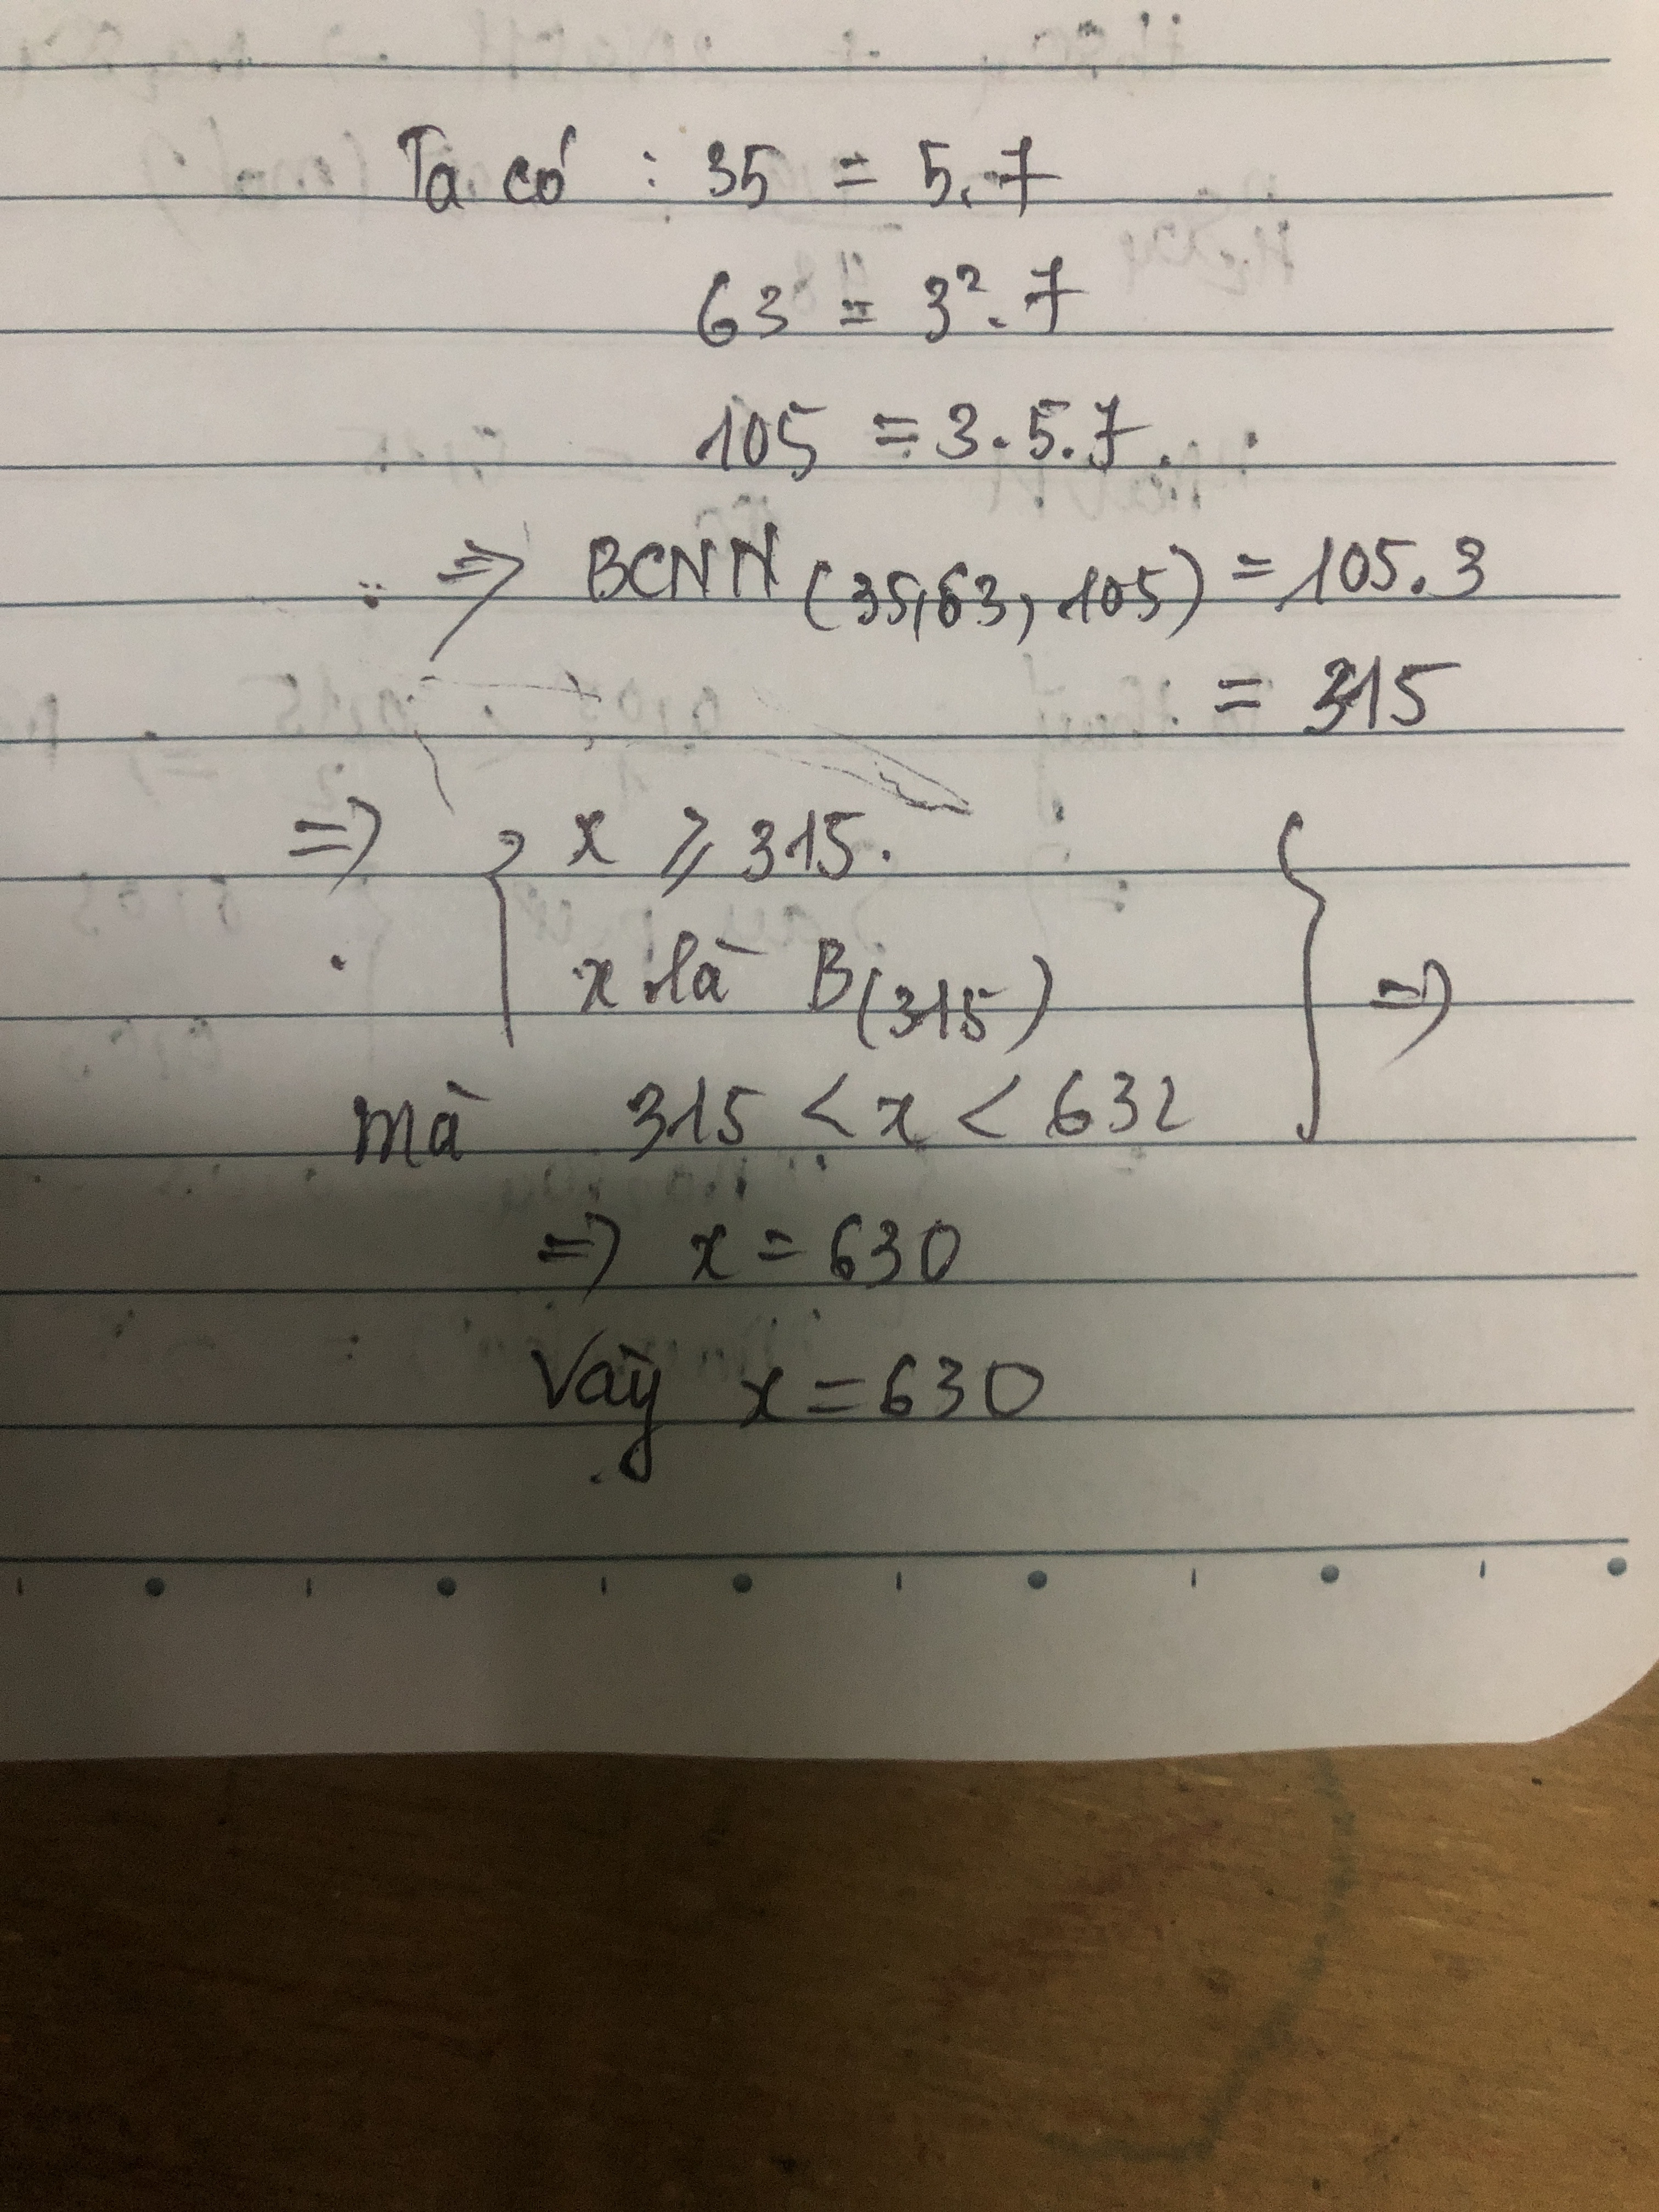 Ta có : 35 = 5.7
63 = 3².7
105 = 3.5.7.
=> BCNN (35,63, 105) = 105.3
= 315
=> { x ⩾ 315.
x là B(315)
mà 315 < x < 632 } =>
=> x = 630
Vậy x = 630